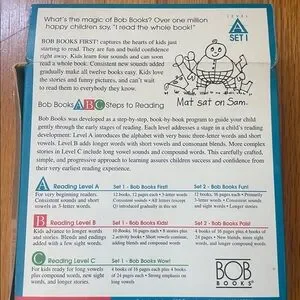 What's the magic of Bob Books? Over one million
happy children say, "I read the whole book!"
LEVEL
A
SET 1
BOB BOOKS FIRST! captures the hearts of kids just
starting to read. They are fun and build confidence
right away. Kids learn four sounds and can soon
read a whole book. Consistent new sounds added
gradually make all twelve books easy. Kids love
the stories and funny pictures, and can't wait
to read them to everybody they know.
Mat sat on Sam.
Bob Books ABC Steps to Reading
Bob Books was developed as a step-by-step, book-by-book program to guide your child
gently through the early stages of reading. Each level addresses a stage in a child's reading
development: Level A introduces the alphabet with very basic three-letter words and short
vowels. Level B adds longer words with short vowels and consonant blends. More complex
stories in Level C include long vowel sounds and compound words. This carefully crafted,
simple, and progressive approach to learning assures children success and confidence from
their very earliest reading experience.
A Reading Level A
For very beginning readers.
Consistent sounds and short
vowels in 3-letter words.
Set 1 - Bob Books First!
12 books, 12 pages each • 3-letter words
Consistent sounds • All letters (except
Q) introduced gradually in this set
Set 2 - Bob Books Fun!
12 books, 16 pages each • Primarily
3-letter words • Consistent sounds
and sight words • Longer stories
B Reading Level B
Kids advance to longer words
and stories. Blends and endings
added with a few sight words.
Set 1 - Bob Books Kids!
8 books, 16 pages each • 8 stories plus
2 activity books • Short vowels continue,
adding blends and compound words
Set 2 - Bob Books Pals!
4 books of 16 pages plus 4 books of
24 pages • New blends, more sight
words, and longer compound words
C Reading Level C
For kids ready for long vowels
plus compound words, new sight
words, and longer stories.
Set 1 - Bob Books Wow!
4 books of 16 pages each plus 4 books
of 24 pages • Strong emphasis on
long vowels
BOB
BOOKS